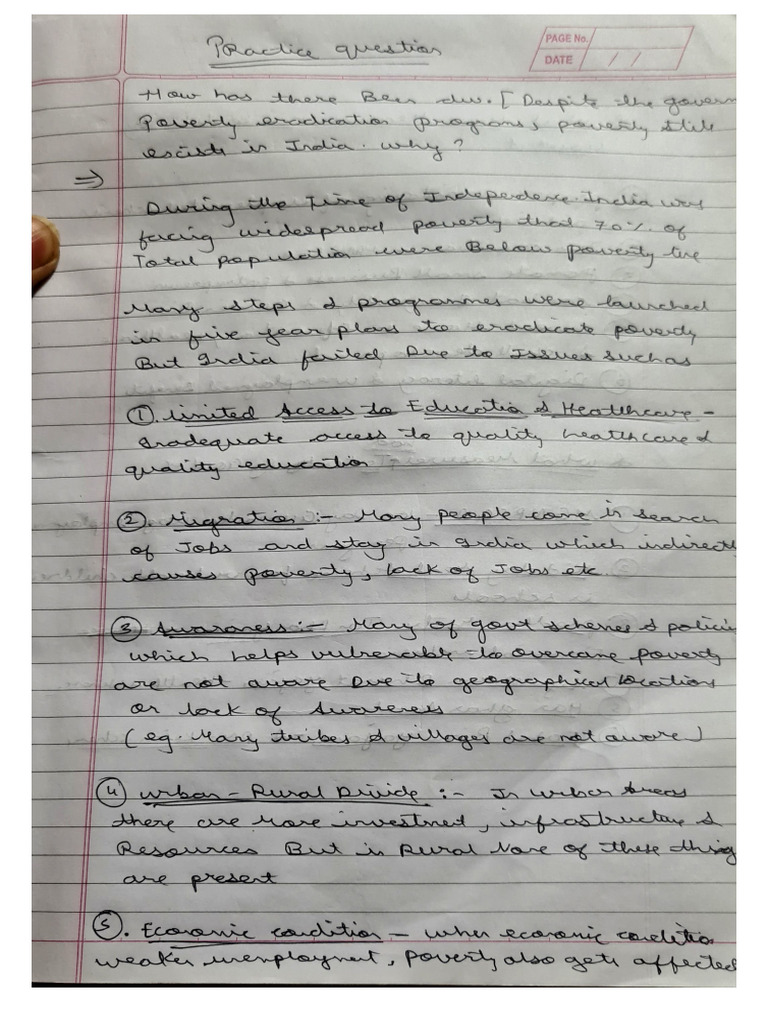 Practice question
PAGE No.
DATE / /
How has there Been div. [ Despite the govern
Poverty eradication programs, poverty still
exists in India. why?
⇒
During the Time of Independence India was
facing widespread poverty that 70% of
Total population were Below poverty line
Many steps & programmes were launched
in five year plans to eradicate poverty
But India failed Due to Issues such as
①. Limited Access to Education & Healthcare -
Inadequate access to quality healthcare &
quality education
②. Migration :- Many people come in search
of Jobs and stay in India which indirectly
causes poverty, lack of Jobs etc
③ Awareness :- Many of govt schemes & polici
which helps vulnerable to overcome poverty
are not aware Due to geographical locations
or lack of Awareness
( eg. Many tribes & villages are not aware )
④ Urban - Rural Divide :- In Urban Areas
there are More investment, infrastructure &
Resources But in Rural None of these thing
are present
⑤. Economic condition - when economic conditio
weaker unemployment, poverty also gets affected